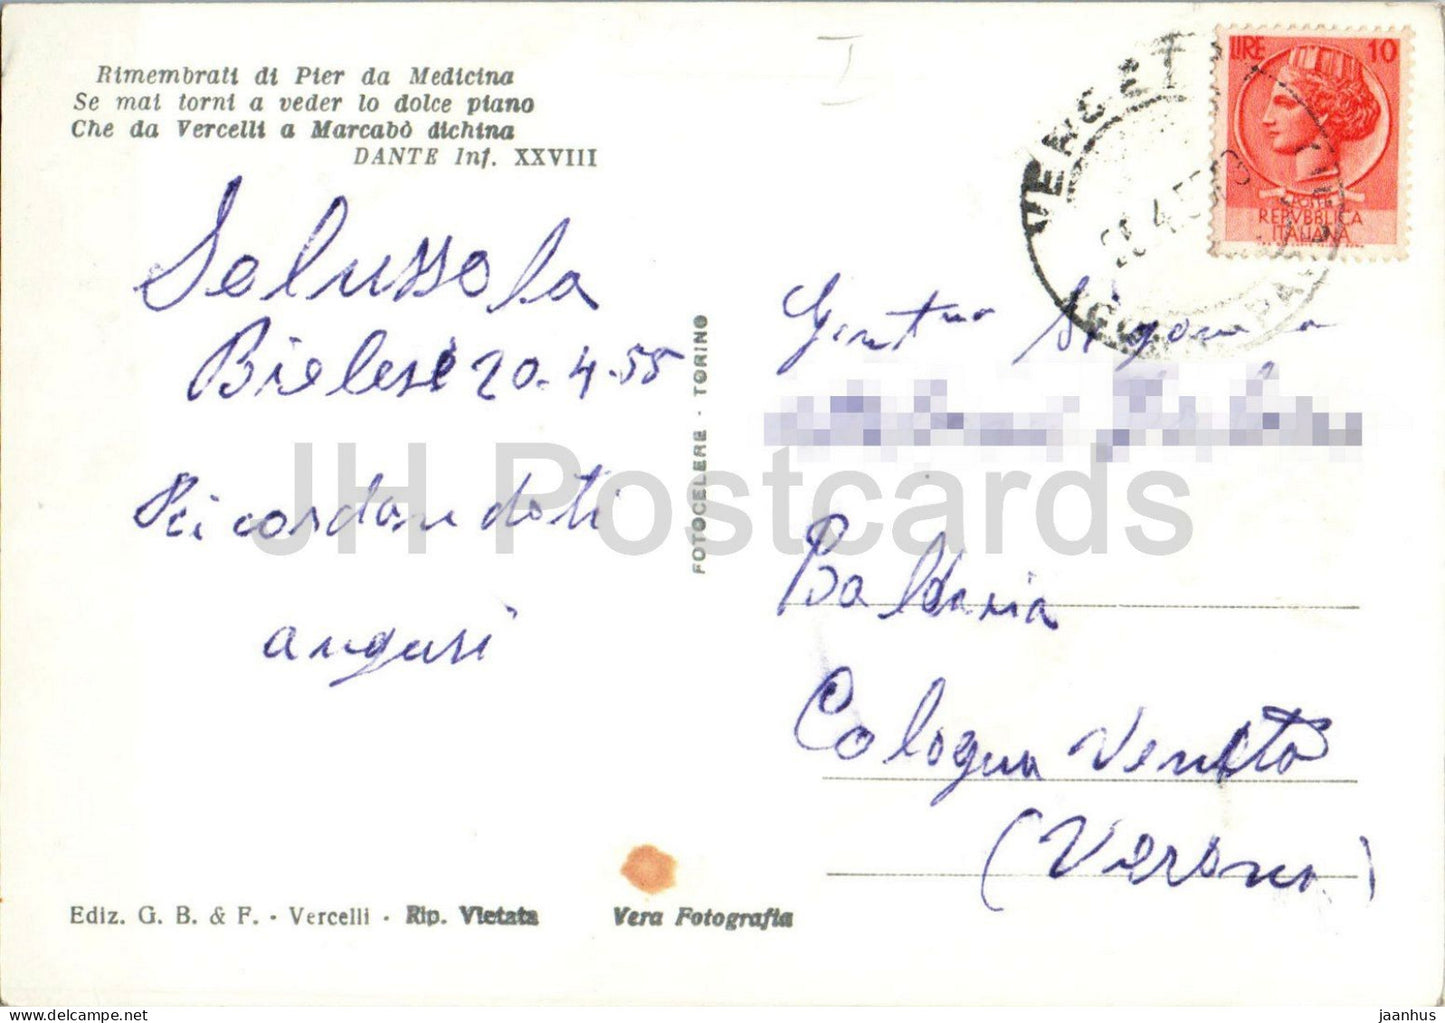 Rimembrati di Pier da Medicina
Se mai torni a veder lo dolce piano
Che da Vercelli a Marcabò dichina
DANTE Inf. XXVIII
Salussola
Bielese 20-4-55
Ricordandoti
auguri
FOTOCELERE - TORINO
LIRE 10
POSTE
REPVBBLICA
ITALIANA
VERCELLI
Signora
Baldaria
Cologna Veneta
(Verona)
Ediz. G. B. & F. - Vercelli - Rip. Vietata
Vera Fotografia
JH Postcards
jaanhus